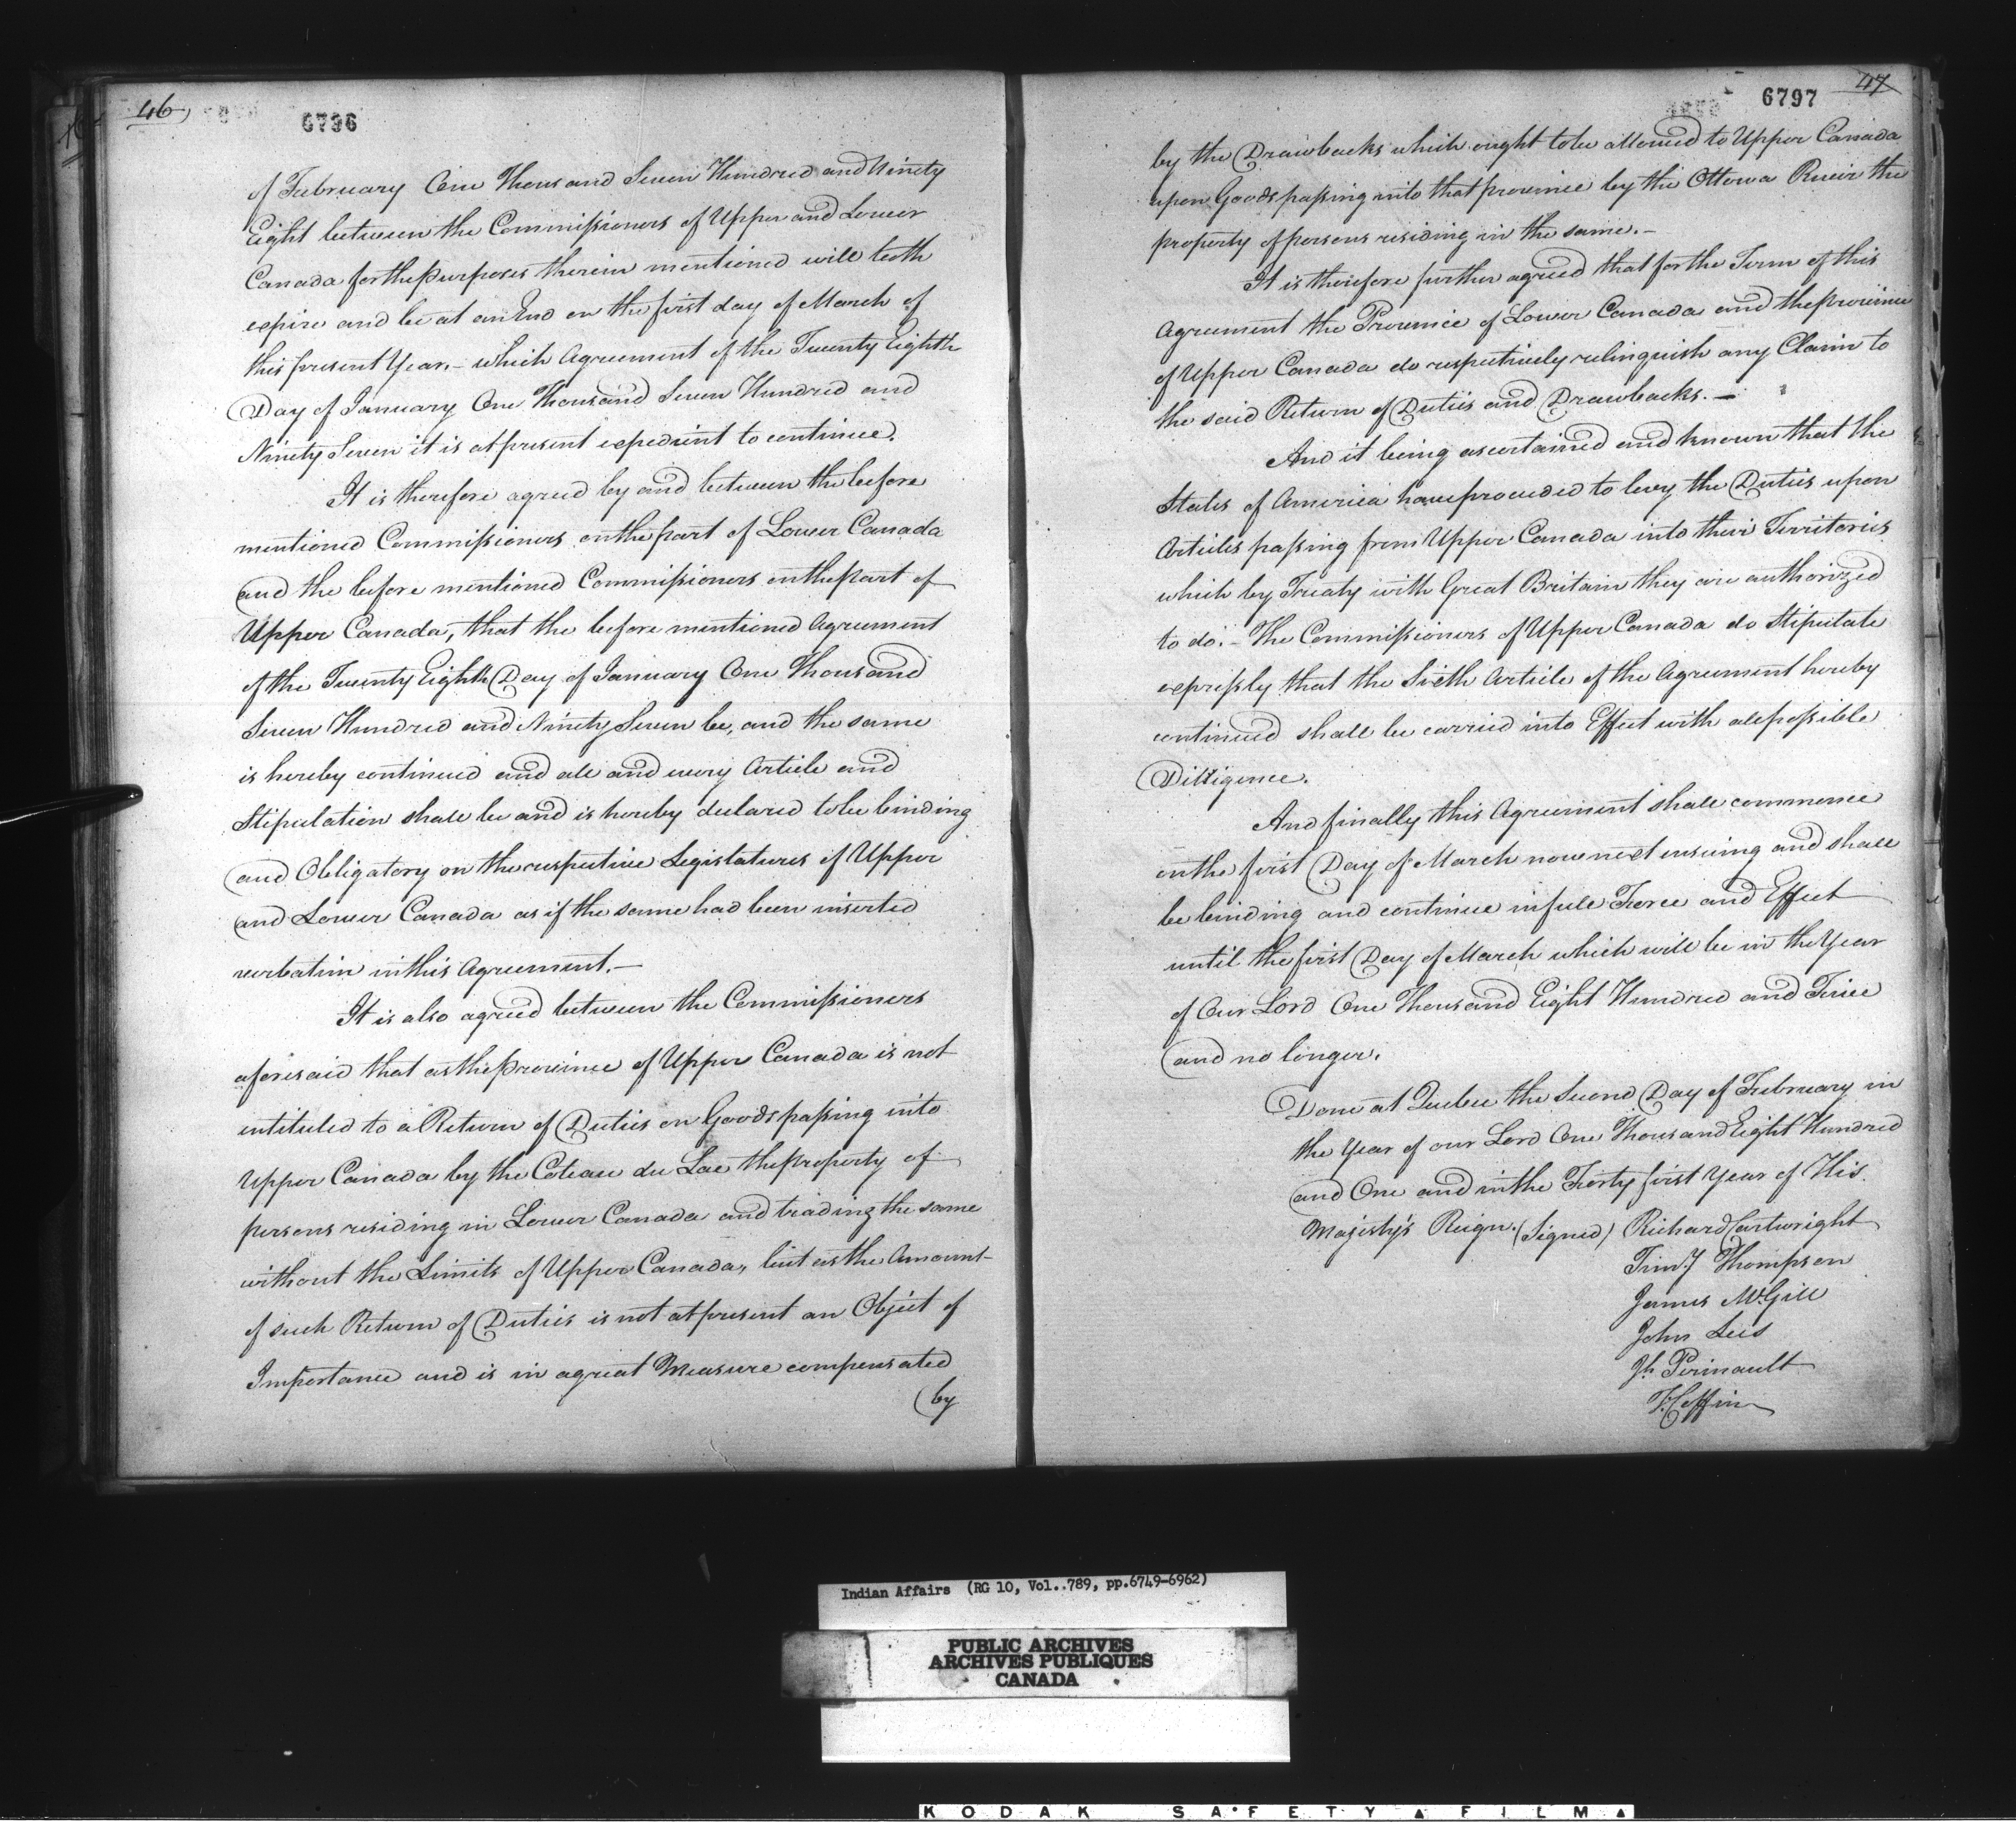 46
6796
of February One Thousand Seven Hundred and Ninety
Eight between the Commissioners of Upper and Lower
Canada for the purposes therein mentioned will both
expire and be at an End on the first day of March of
this present Year. – which Agreement of the Twenty Eighth
Day of January One Thousand Seven Hundred and
Ninety Seven it is at present expedient to continue.
It is therefore agreed by and between the before
mentioned Commissioners on the part of Lower Canada
and the before mentioned Commissioners on the part of
Upper Canada, that the before mentioned Agreement
of the Twenty Eighth Day of January One Thousand
Seven Hundred and Ninety Seven be, and the same
is hereby continued and all and every Article and
Stipulation shall be and is hereby declared to be binding
and Obligatory on the respective Legislatures of Upper
and Lower Canada as if the same had been inserted
verbatim in this Agreement. –
It is also agreed between the Commissioners
aforesaid that as the province of Upper Canada is not
intituled to a Return of Duties on Goods passing into
Upper Canada by the Coteau du Lac the property of
persons residing in Lower Canada and trading the same
without the Limits of Upper Canada, but as the Amount
of such Return of Duties is not at present an Object of
Importance and is in a great Measure compensated
by
6797
47
by the Drawbacks which ought to be allowed to Upper Canada
upon Goods passing into that province by the Ottowa River the
property of persons residing in the same. –
It is therefore further agreed that for the Term of this
Agreement the Province of Lower Canada and the province
of Upper Canada do respectively relinquish any Claim to
the said Return of Duties and Drawbacks. –
And it being ascertained and known that the
States of America have proceeded to levy the Duties upon
Articles passing from Upper Canada into their Territories
which by Treaty with Great Britain they are authorized
to do. – The Commissioners of Upper Canada do Stipulate
expressly that the Sixth Article of the Agreement hereby
continued shall be carried into Effect with all possible
Dilligence.
And finally this Agreement shall commence
on the first Day of March now next ensuing and shall
be binding and continue in full Force and Effect
until the first Day of March which will be in the Year
of Our Lord One Thousand Eight Hundred and Five
and no longer.
Done at Quebec the Second Day of February in
the Year of our Lord One Thousand Eight Hundred
and One and in the Forty first Year of His
Majesty's Reign. (Signed) Richard Cartwright
Timy Thompson
James McGill
John Lees
Jh Perinault
T. Coffin
Indian Affairs (RG 10, Vol. 789, pp.6749-6962)
PUBLIC ARCHIVES
ARCHIVES PUBLIQUES
CANADA
KODAK SAFETY FILM